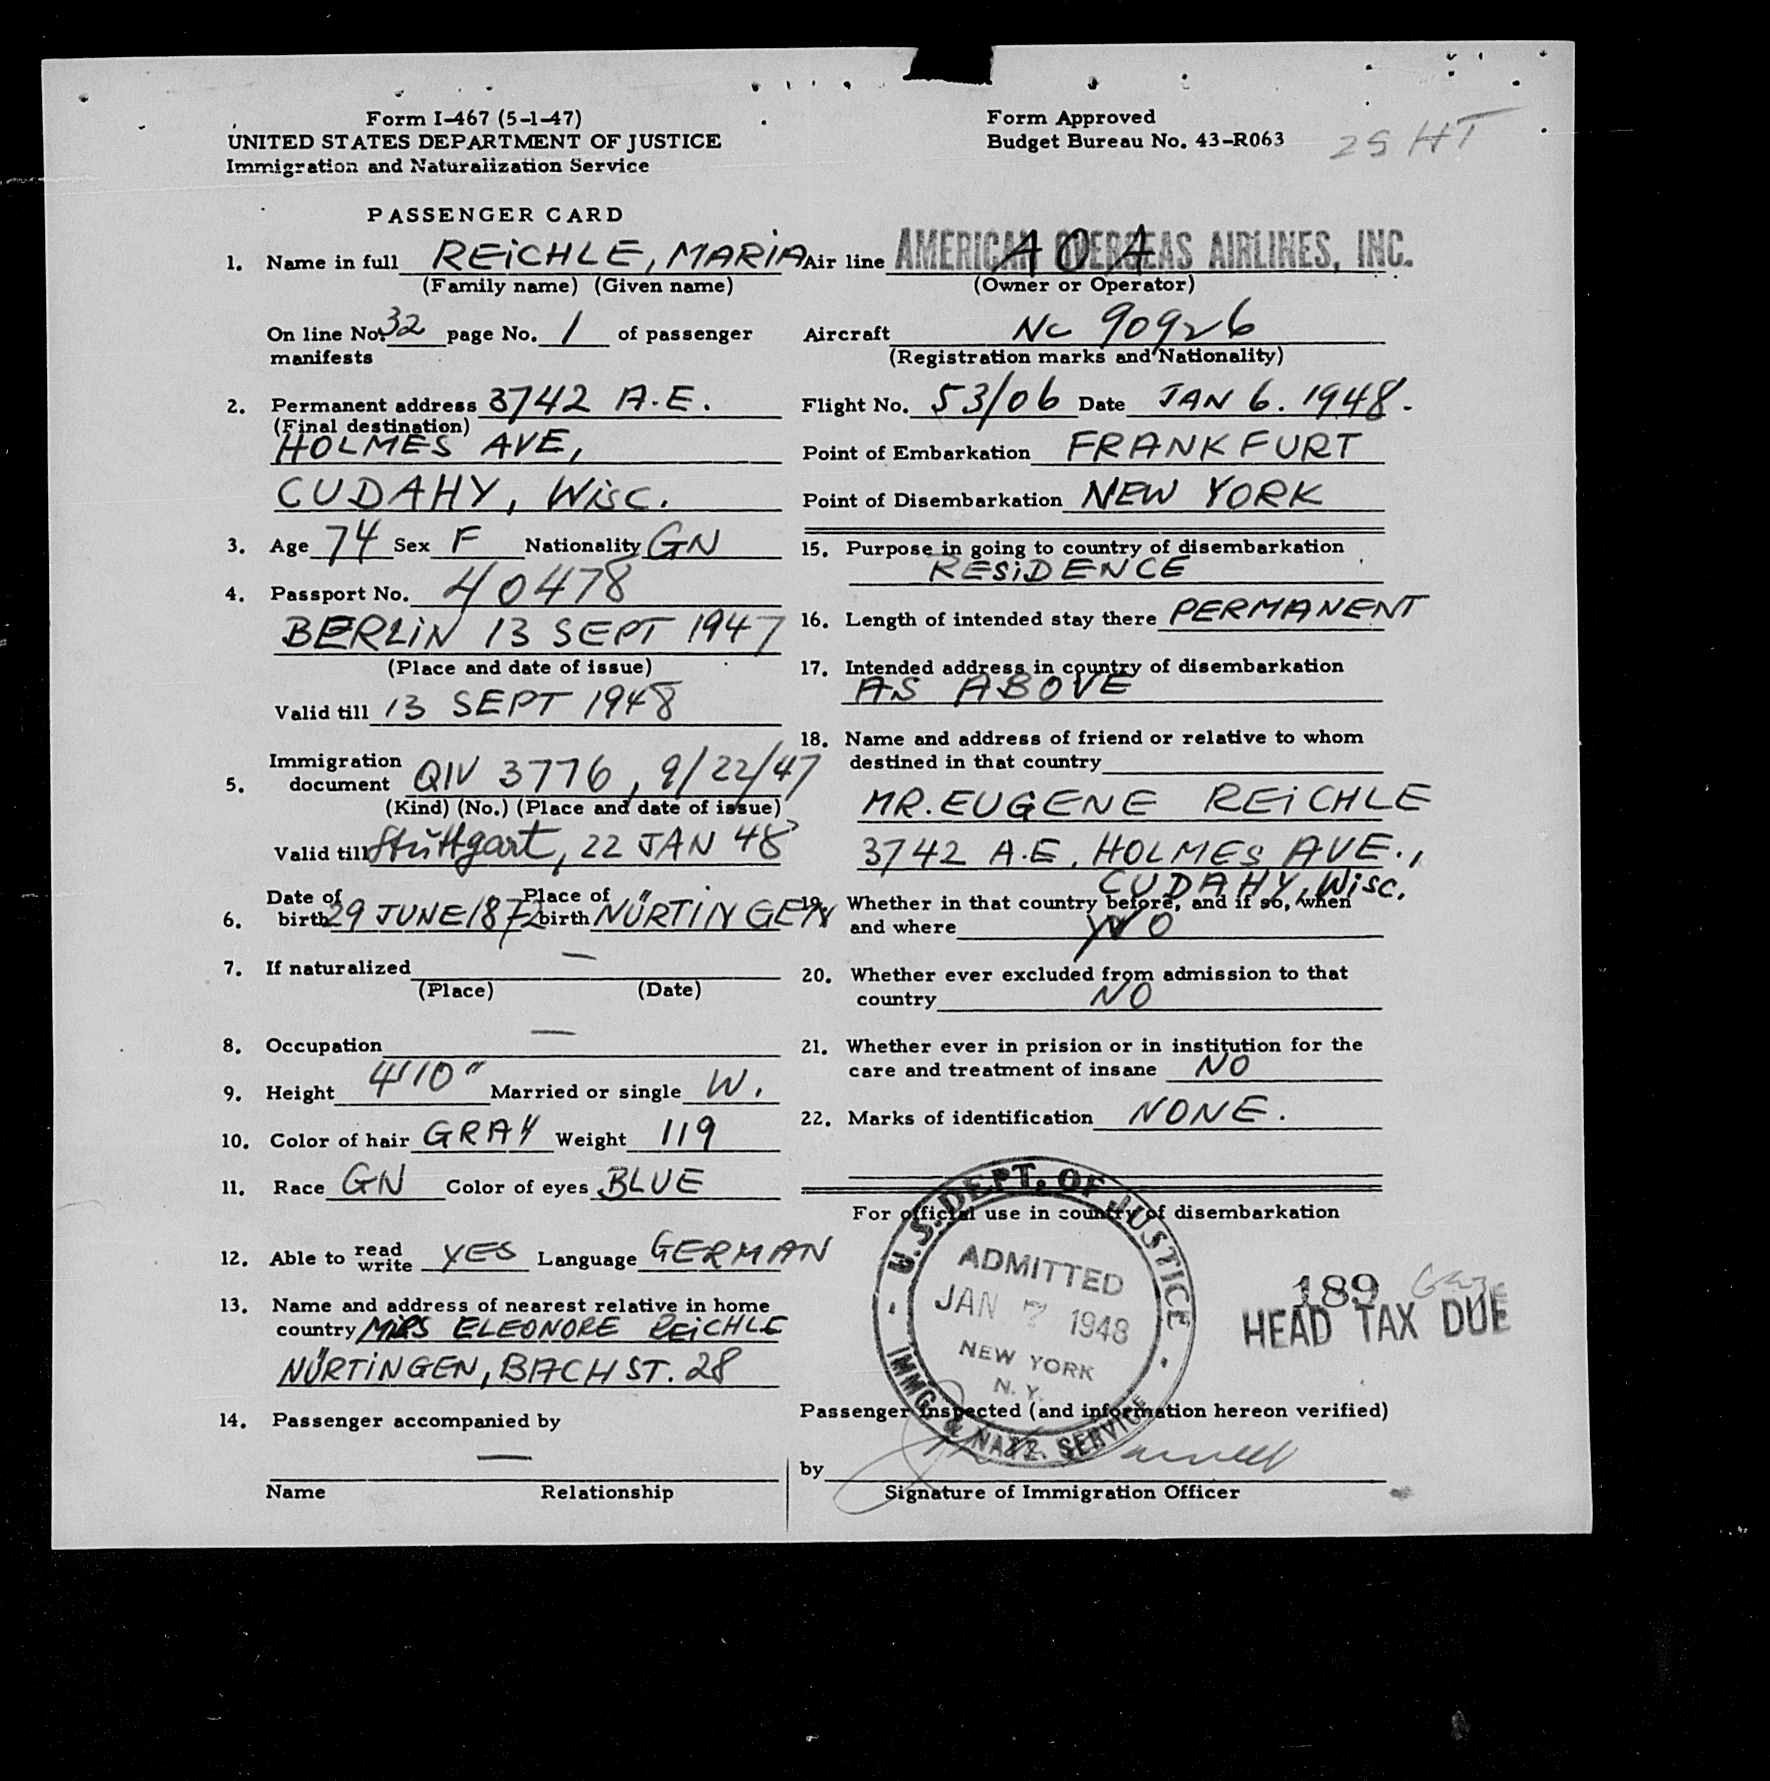 Form I-467 (5-1-47)
UNITED STATES DEPARTMENT OF JUSTICE
Immigration and Naturalization Service
Form Approved
Budget Bureau No. 43-R063
25 HT
PASSENGER CARD
1. Name in full REiCHLE, MARiA
(Family name) (Given name)
On line No. 32 page No. 1 of passenger
manifests
2. Permanent address 3742 A.E.
(Final destination)
HOLMES AVE,
CUDAHY, WiSC.
3. Age 74 Sex F Nationality GN
4. Passport No. 40478
BERLiN 13 SEPT 1947
(Place and date of issue)
Valid till 13 SEPT 1948
5. Immigration
document QIV 3776, 9/22/47
(Kind) (No.) (Place and date of issue)
Valid till Stuttgart, 22 JAN 48
6. Date of birth 29 JUNE 1872 Place of birth NÜRTiNGEN
7. If naturalized —
(Place) (Date)
8. Occupation —
9. Height 4'10" Married or single W.
10. Color of hair GRAY Weight 119
11. Race GN Color of eyes BLUE
12. Able to read write YES Language GERMAN
13. Name and address of nearest relative in home
country MRS ELEONORE REiCHLE
NÜRTiNGEN, BACHST. 28
14. Passenger accompanied by
—
Name Relationship
Air line AMERICAN OVERSEAS AIRLINES, INC.
A O A
(Owner or Operator)
Aircraft Nc 90926
(Registration marks and Nationality)
Flight No. 53/06 Date JAN 6. 1948.
Point of Embarkation FRANKFURT
Point of Disembarkation NEW YORK
15. Purpose in going to country of disembarkation
RESiDENCE
16. Length of intended stay there PERMANENT
17. Intended address in country of disembarkation
AS ABOVE
18. Name and address of friend or relative to whom
destined in that country
MR. EUGENE REiCHLE
3742 A.E. HOLMES AVE.,
CUDAHY, WiSC.
19. Whether in that country before, and if so, when
and where NO
20. Whether ever excluded from admission to that
country NO
21. Whether ever in prision or in institution for the
care and treatment of insane NO
22. Marks of identification NONE.
For official use in country of disembarkation
U.S. DEPT. OF JUSTICE
ADMITTED
JAN 7 1948
NEW YORK
N. Y.
IMMG. & NATZ. SERVICE
189
HEAD TAX DUE
Passenger inspected (and information hereon verified)
by
Signature of Immigration Officer